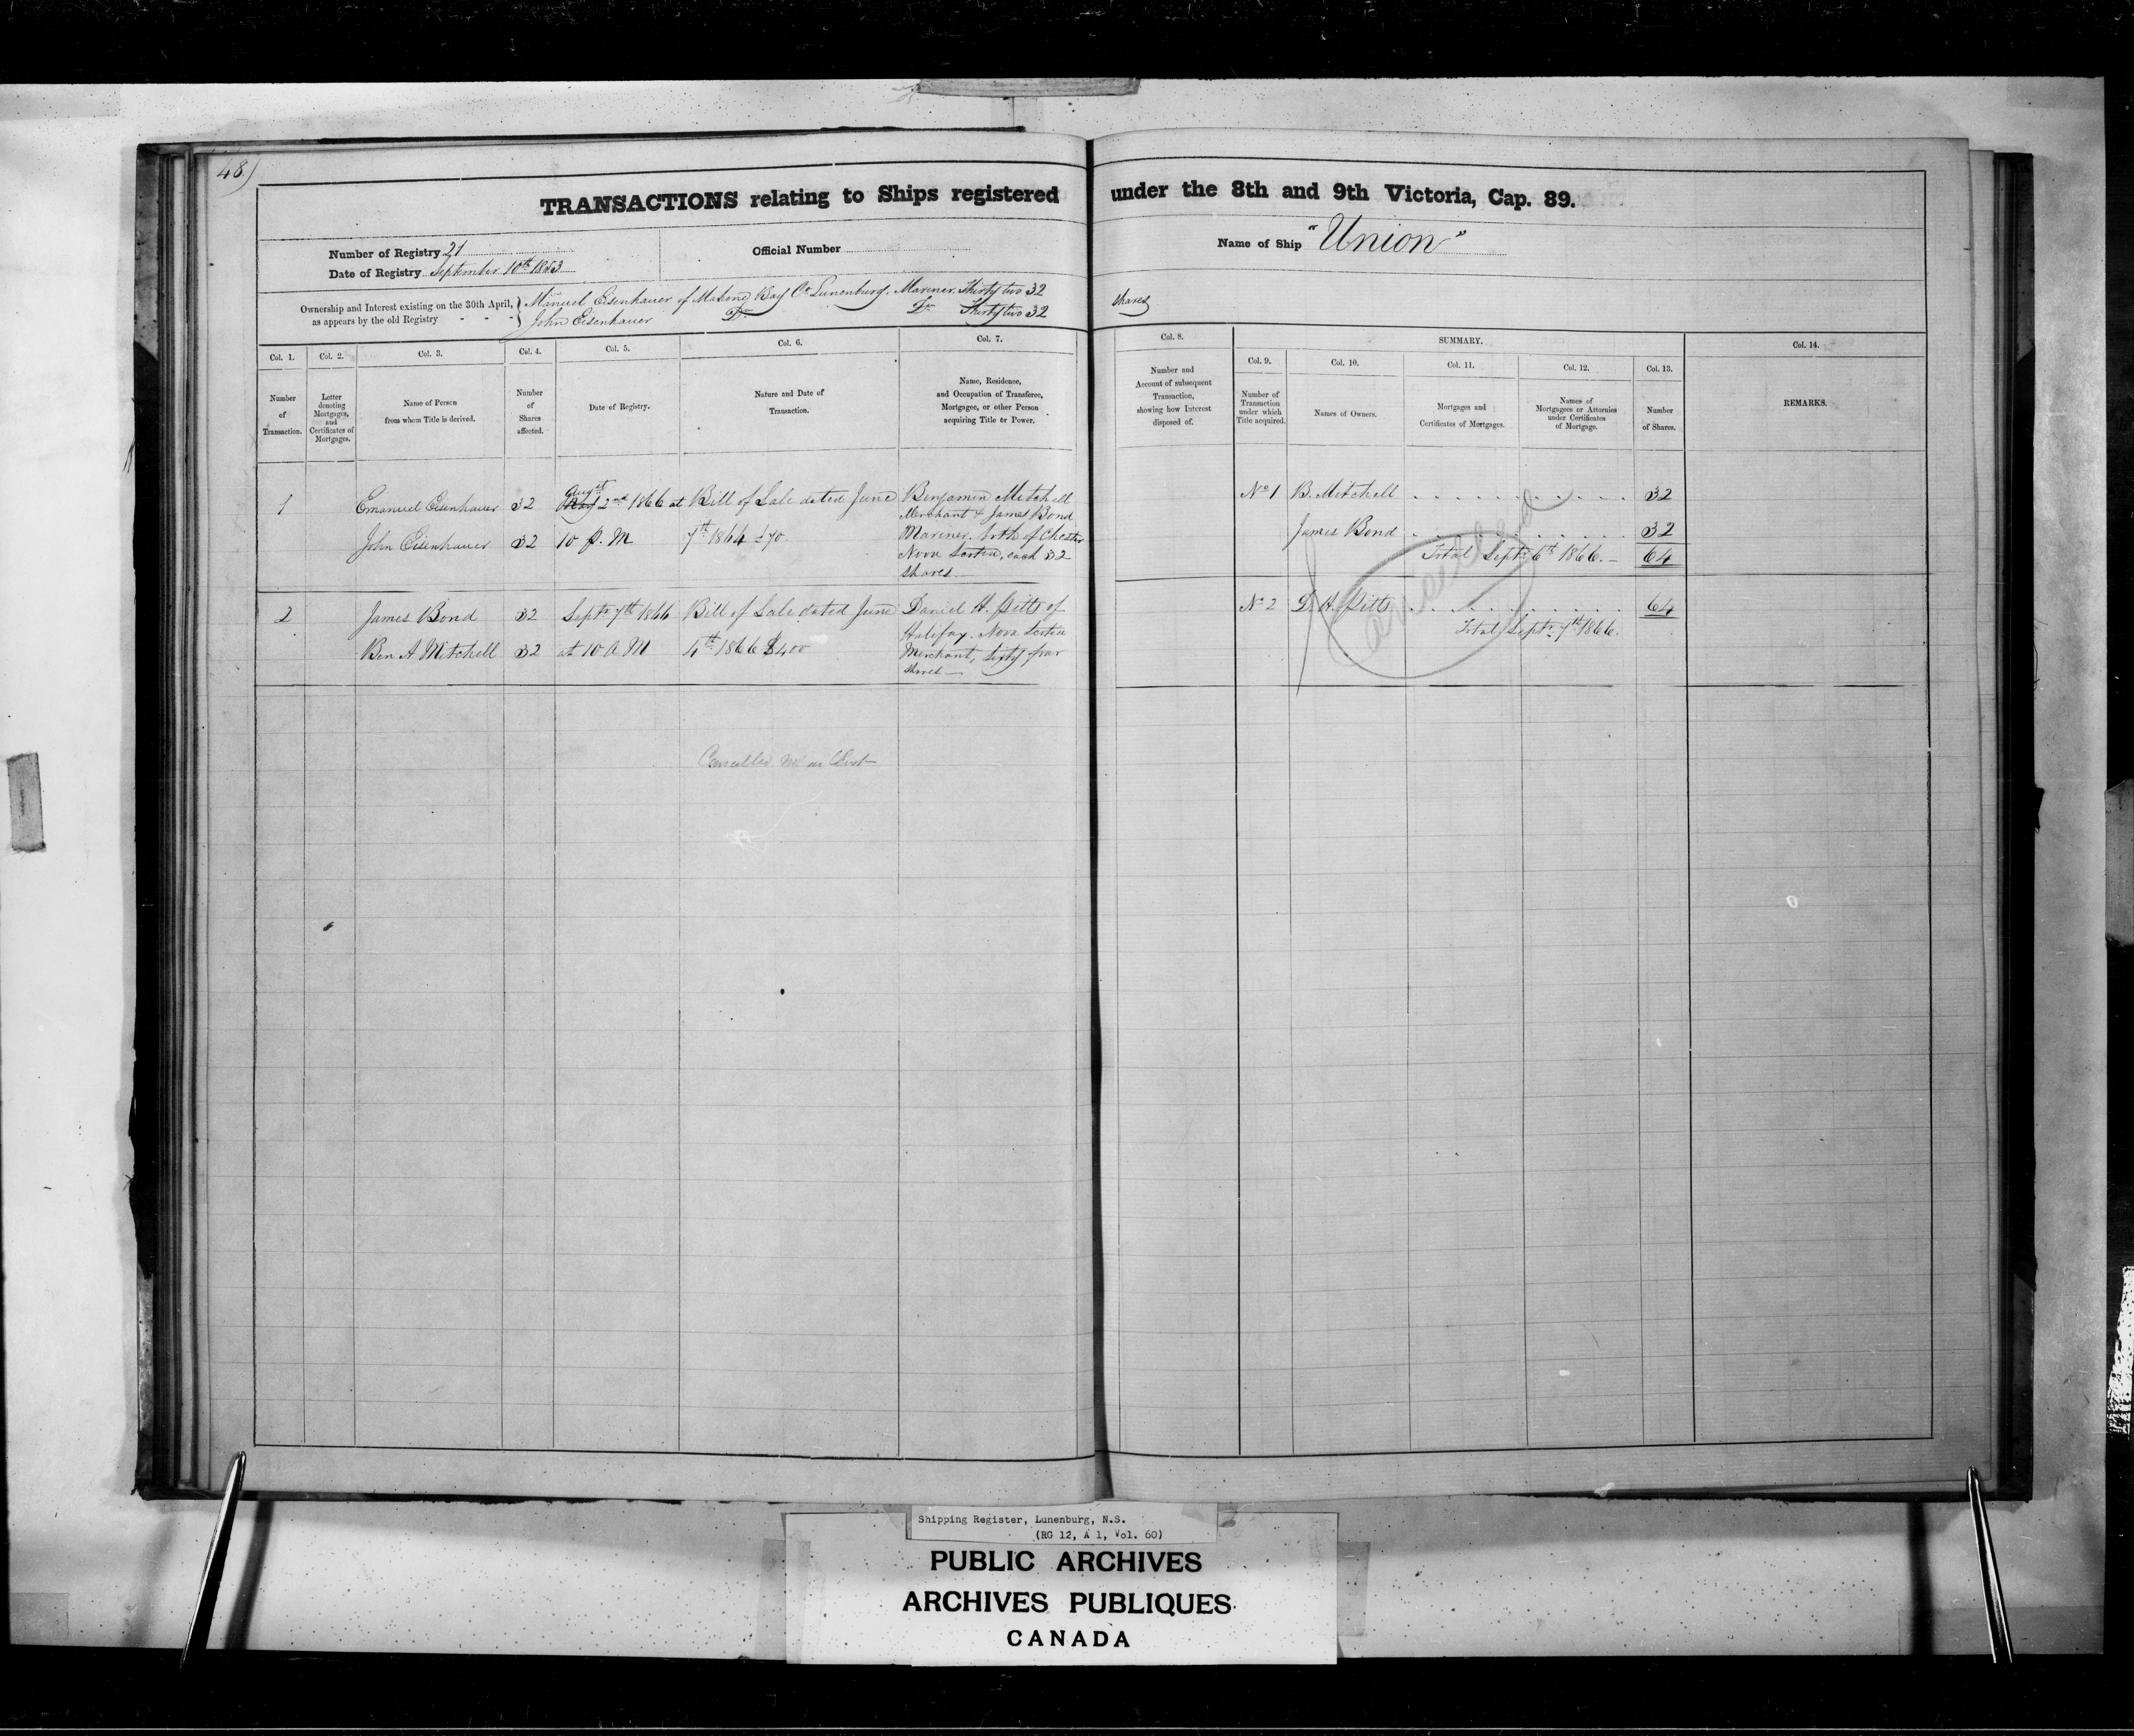 48)
TRANSACTIONS relating to Ships registered under the 8th and 9th Victoria, Cap. 89.
Number of Registry 21
Official Number
Name of Ship "Union"
Date of Registry September 10th 1853
Ownership and Interest existing on the 30th April, as appears by the old Registry
Manuel Eisenhauer of Mahone Bay Co Lunenburg. Mariner. Thirty two 32 shares
John Eisenhauer Do Do Thirty two 32
Col. 1.
Number of Transaction.
Col. 2.
Letter denoting Mortgages, and Certificates of Mortgages.
Col. 3.
Name of Person from whom Title is derived.
Col. 4.
Number of Shares affected.
Col. 5.
Date of Registry.
Col. 6.
Nature and Date of Transaction.
Col. 7.
Name, Residence, and Occupation of Transferee, Mortgagee, or other Person acquiring Title or Power.
Col. 8.
Number and Account of subsequent Transaction, showing how Interest disposed of.
SUMMARY.
Col. 9.
Number of Transaction under which Title acquired.
Col. 10.
Names of Owners.
Col. 11.
Mortgages and Certificates of Mortgages.
Col. 12.
Names of Mortgagees or Attornies under Certificates of Mortgage.
Col. 13.
Number of Shares.
Col. 14.
REMARKS.
1
Emanuel Eisenhauer 32
John Eisenhauer 32
Augst
May 2nd 1866 at
10 P. M
Bill of Sale dated June
7th 1864 £70
Benjamin Mitchell
Merchant & James Bond
Mariner. both of Chester
Nova Scotia, each 32
shares
No 1 B. Mitchell 32
James Bond 32
Total Septr 6th 1866. 64
2
James Bond 32
Ben A Mitchell 32
Septr 7th 1866
at 10 A M
Bill of Sale dated June
4th 1866 $400
Daniel H. Pitts of
Halifax. Nova Scotia
Merchant, sixty four
shares
No 2 D. H. Pitts 64
Total Septr 7th 1866.
Cancelled
Cancelled
Shipping Register, Lunenburg, N.S.
(RG 12, A 1, Vol. 60)
PUBLIC ARCHIVES
ARCHIVES PUBLIQUES
CANADA